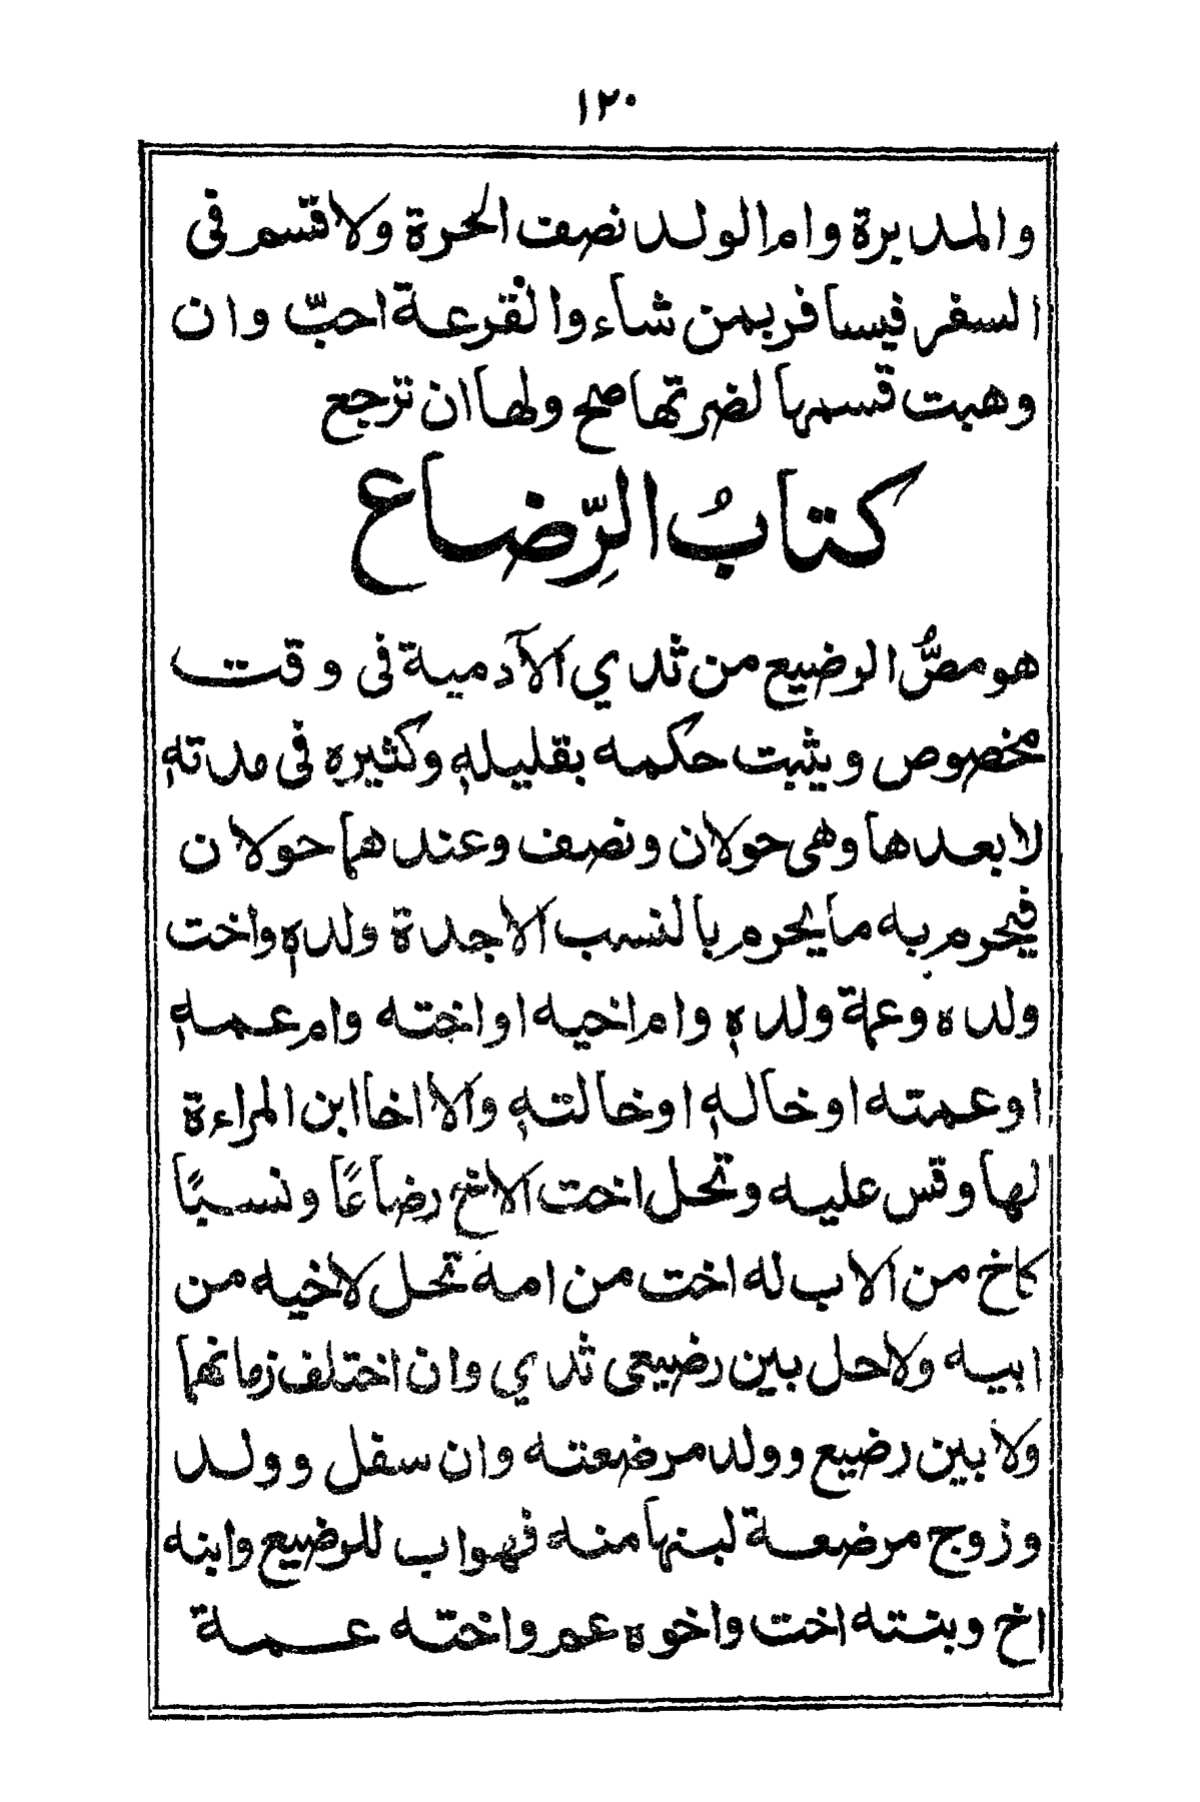 ١٢٠
والمدبرة وام الولد نصف الحرة ولا قسم فى
السفر فيسافر بمن شاء والقرعة احبّ وان
وهبت قسمها لضرتها صح ولها ان ترجع
كتابُ الرِّضاع
هو مصُّ الرضيع من ثدي الآدمية فى وقت
مخصوص ويثبت حكمه بقليله وكثيره فى مدته
لا بعدها وهى حولان ونصف وعندهما حولان
فيحرم به ما يحرم بالنسب الا جدة ولده واخت
ولده وعمة ولده وام اخيه او اخته وام عمه
او عمته او خاله او خالته والا اخا ابن المراءة
لها وقس عليه وتحل اخت الاخ رضاعًا ونسبًا
كاخ من الاب له اخت من امه تحل لاخيه من
ابيه ولا حل بين رضيعى ثدي وان اختلف زمانهما
ولا بين رضيع وولد مرضعته وان سفل وولد
وزوج مرضعة لبنها منه فهو اب للرضيع وابنه
اخ وبنته اخت واخوه عم واخته عمة